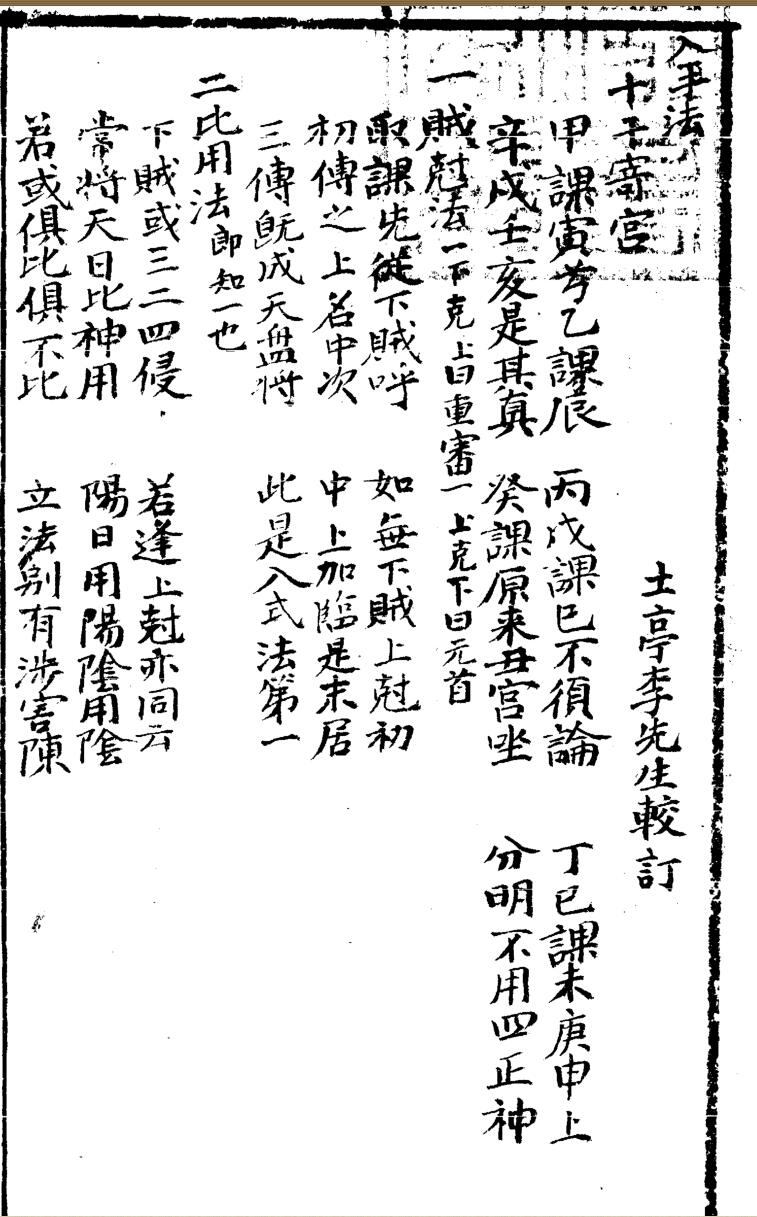 入手法
土亭李先生較訂
十干寄宮
甲課寅兮乙課辰 丙戊課巳不須論 丁己課未庚申上
辛戌壬亥是其真 癸課原来丑宮坐 分明不用四正神
一賊尅法 一下克上曰重審 一上克下曰元首
取課先從下賊呼 如無下賊上尅初
初傳之上名中次 中上加臨是末居
三傳既成天盤將 此是入式法第一
二比用法 即知一也
下賊或三二四侵 若逢上尅亦同云
常將天日比神用 陽日用陽陰用陰
若或俱比俱不比 立法別有涉害陳